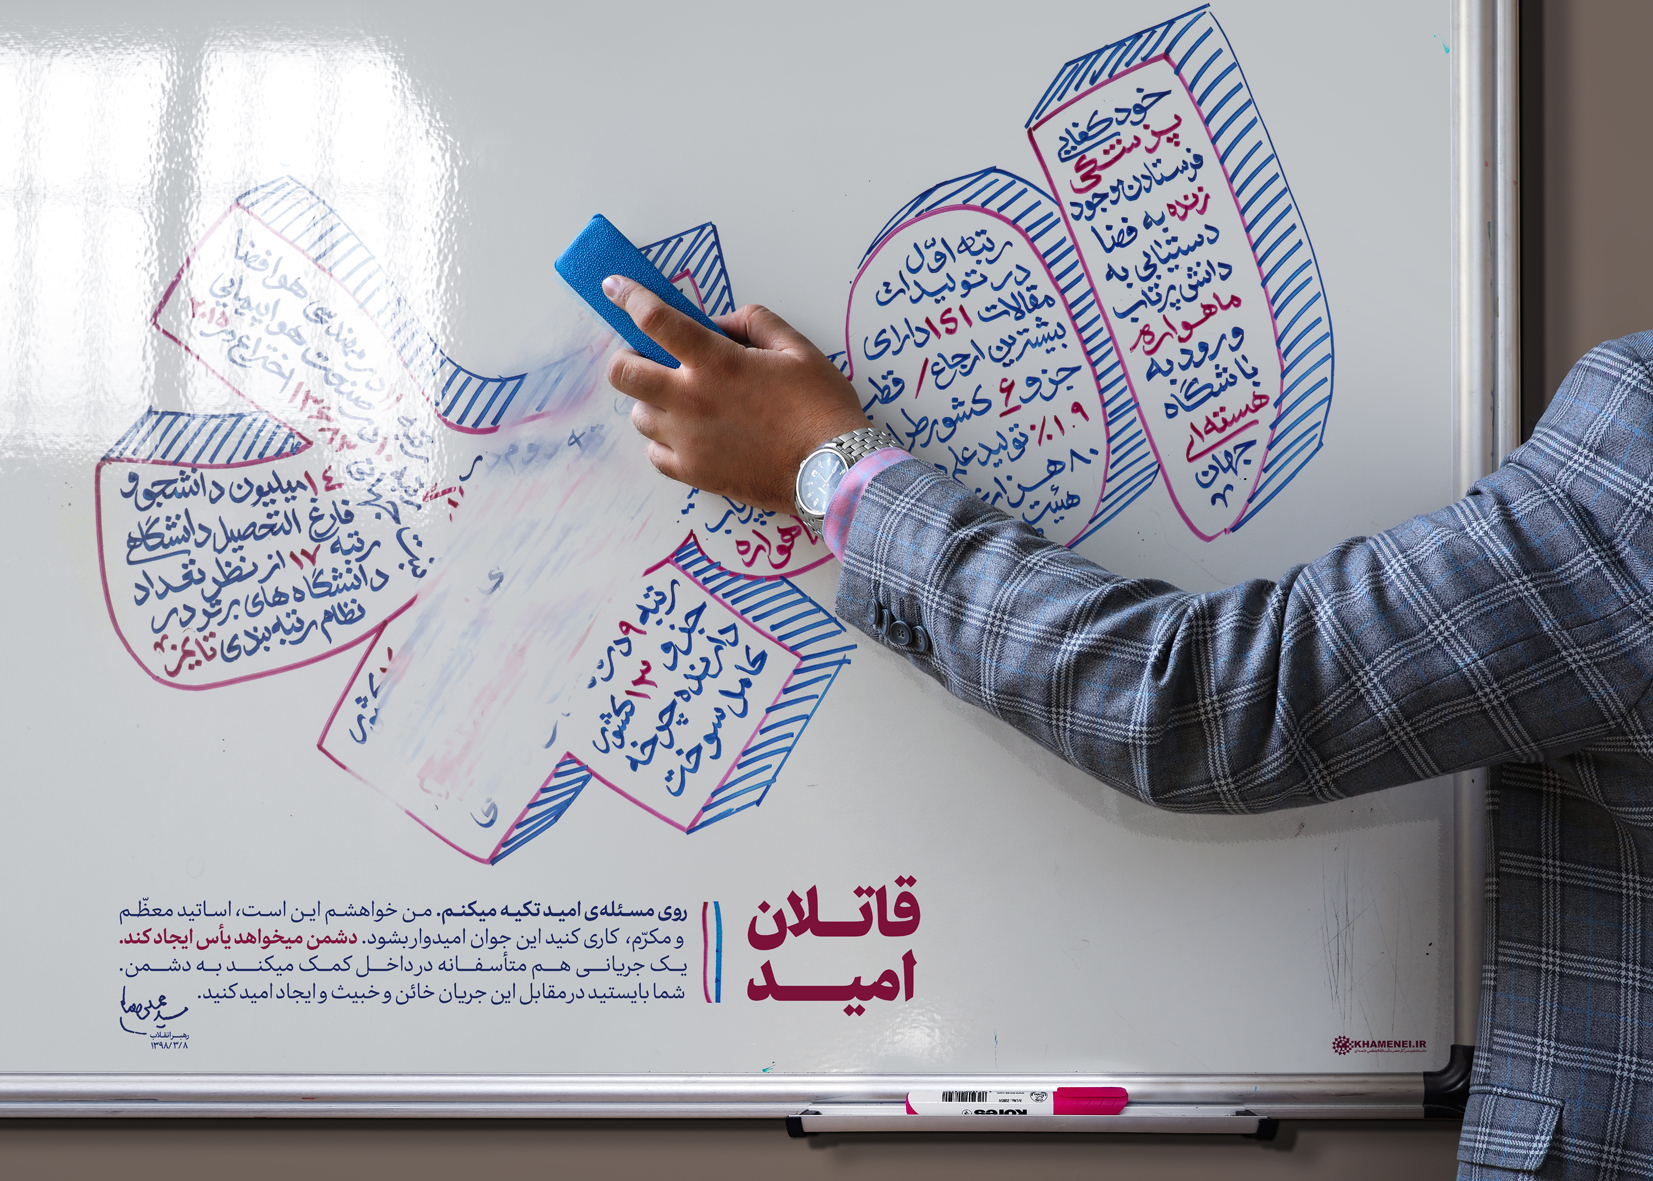 خودکفایی
پزشکی
فرستادن موجود
زنده به فضا
دستیابی به
دانش پرتاب
ماهواره
ورود به
باشگاه
هسته‌ای
جهان
رتبه اوّل
در تولیدات
مقالات ISI دارای
بیشترین ارجاع / قطب
جزو ۶ کشور
۱.۹٪ تولید علم
۸۰ هزار
هیئت
ماهواره
رتبه ۹ در
جزو ۱۳ کشور
دارنده چرخه
کامل سوخت
در مهندسی هوافضا
صنعت هواپیمایی
اختراع در ۲۰۱۵
۴ میلیون دانشجو و
فارغ التحصیل دانشگاه
رتبه ۱۷ از نظر تعداد
دانشگاه های برتر در
نظام رتبه بندی تایمز
قاتلان
امید
روی مسئله‌ی امید تکیه میکنم. من خواهشم این است، اساتید معظّم
و مکرّم، کاری کنید این جوان امیدوار بشود. دشمن میخواهد یأس ایجاد کند.
یک جریانی هم متأسفانه در داخل کمک میکند به دشمن.
شما بایستید در مقابل این جریان خائن و خبیث و ایجاد امید کنید.
رهبر انقلاب
۱۳۹۸/۳/۸
KHAMENEI.IR
Kores